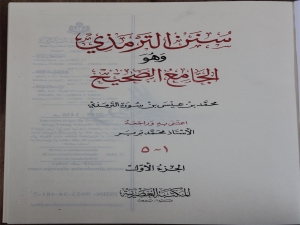 سنن الترمذي
وهو
الجامع الصحيح
محمد بن عيسى بن سورة الترمذي
اعتنى به وراجعه
الأستاذ محمد بربر
١-٥
الجزء الأول
المكتبة العصرية